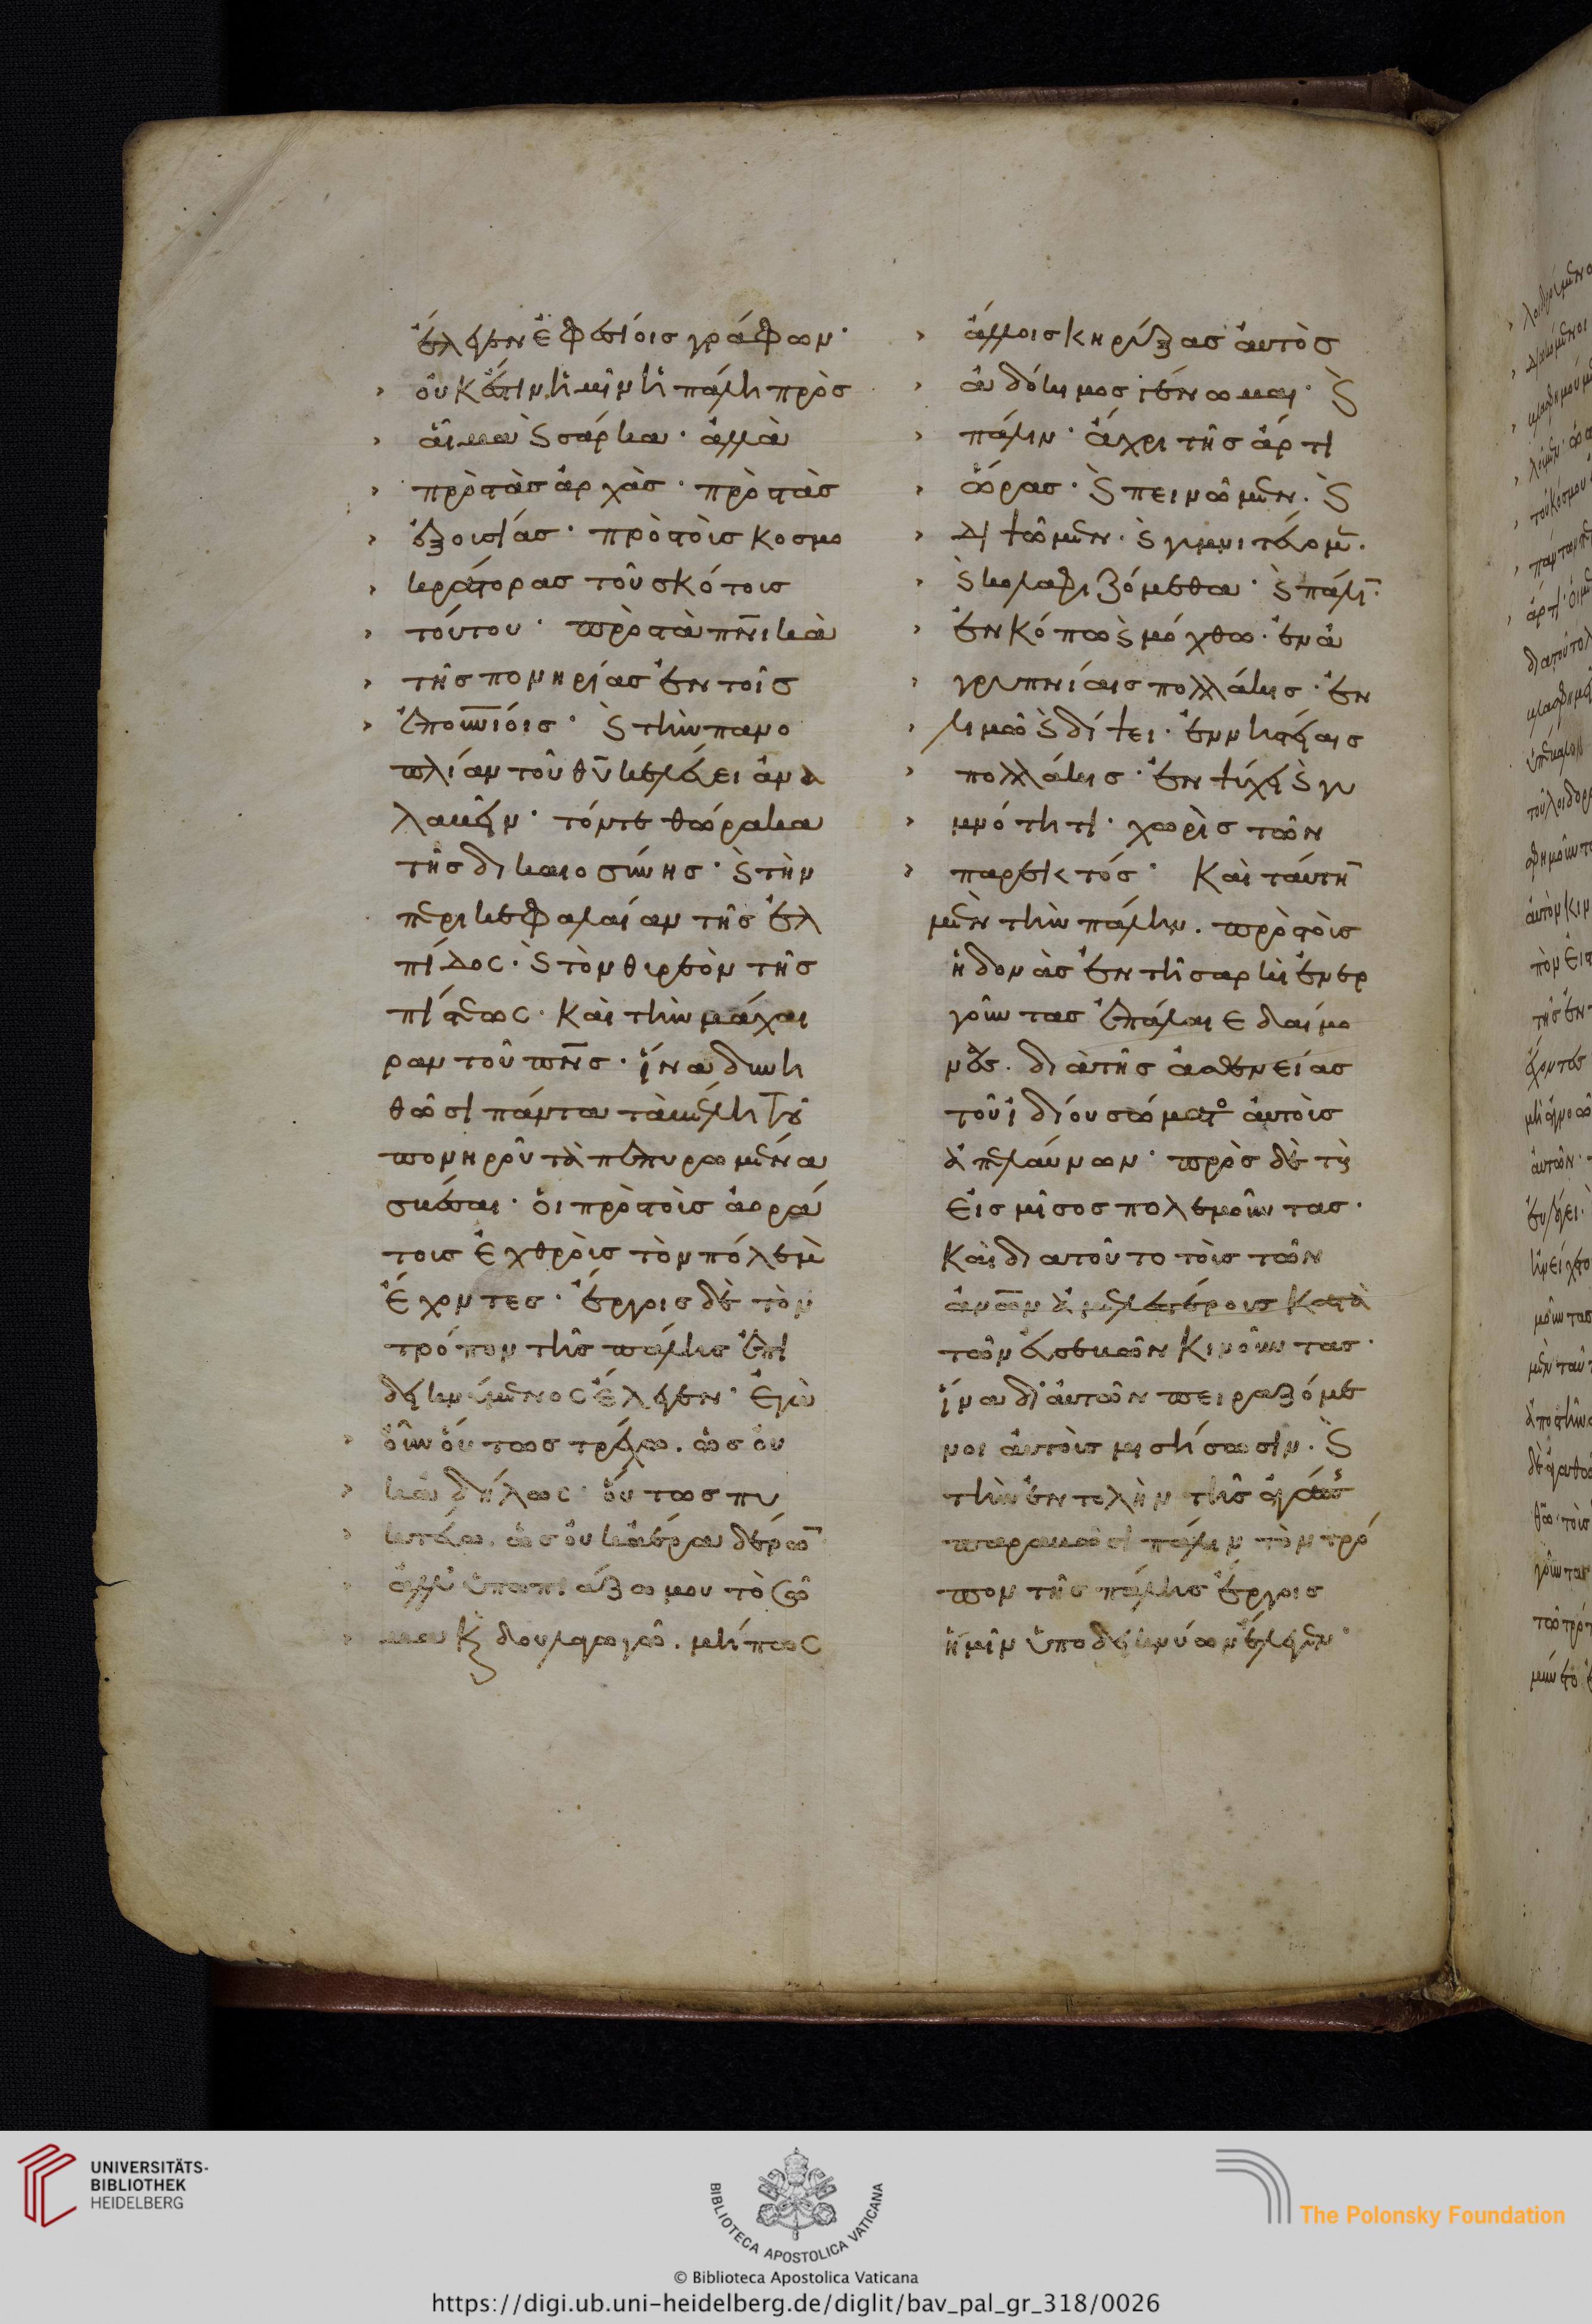 ἔλεγεν ἐφεσίοις γράφων·
οὐκ ἔστιν ἡμῖν ἡ πάλη πρὸς
αἷμα ϗ σάρκα· ἀλλὰ
πρὸς τὰς ἀρχάς· πρὸς τὰς
ἐξουσίας· πρὸς τοὺς κοσμο
κράτορας τοῦ σκότους
τούτου· πρὸς τὰ πν̅ικὰ
τῆς πονηρίας ἐν τοῖς
ἐπουνίοις· ϗ τὴν πανο
πλίαν τοῦ θυ̅ κελεύει ἀνα
λαβεῖν· τόν τε θώρακα
τῆς δικαιοσύνης· ϗ τὴν
περικεφαλαίαν τῆς ἐλ
πίδος· ϗ τὸν θυρεὸν τῆς
πίστεως· καὶ τὴν μάχαι
ραν τοῦ πν̅ς· ἵνα δυνη
θῶσι πάντα τὰ βέλη τοῦ
πονηροῦ τὰ πεπυρωμένα
σβέσαι· οἱ πρὸς τοὺς ἀορά
τους ἐχθροὺς τὸν πόλεμὸ
ἔχοντες· ἔργοις δὲ τὸν
τρόπον τῆς πάλης ἐπι
δεικνύμενος ἔλεγεν· ἐγὼ
οὖν οὕτως τρέχω. ὡς οὐ
κ ἀδήλως· οὕτως πυ
κτεύω. ὡς οὐκ ἀέρα δέρω̅
ἀλλ' ὑποπιάζω μου τὸ σῶ
μα κ δουλαγωγῶ. μήπως
ἄλλοις κηρύξας αὐτὸς
ἀδόκιμος γένωμαι· ϗ
πάλιν· ἄχρι τῆς ἄρτι
ὥρας· ϗ πεινῶμεν. ϗ
διψῶμεν. ϗ γυμνιτεύομε̅.
ϗ κολαφιζόμεθα· ϗ πάλι̅·
ἐν κόπω ϗ μόχθω. ἐν ἀ
γρυπνίαις πολλάκις· ἐν
λιμῶ ϗ δίψει· ἐν νηστείαις
πολλάκις· ἐν ψύχει ϗ γυ
μνότητι· χωρὶς τῶν
παρεκτός· καὶ ταύτη̅
μὲν τὴν πάλην. πρὸς τοὺς
ἡδονὰς ἐν τῆ σαρκὶ ἐνερ
γοῦντας ἐπάλαιε δαίμο
νας. διὰ τῆς ἀσθενείας
τοῦ ἰδίου σώματο αὐτοὺς
ἀπελαύνων· πρὸς δὲ τοὺς
εἰς μῖσος πολεμοῦντας·
καὶ διὰ τοῦτο τοὺς τῶν
ἀνω̅ν ἀμελεστέρους κατὰ
τῶν εὐσεβῶν κινοῦντας·
ἵνα δι αὐτῶν πειραζόμε
νοι αὐτοὺς μισήσωσιν. ϗ
τὴν ἐντολὴν τῆς ἀγάπης
παραβῶσι πάλιν τὸν τρό
πον τῆς πάλης ἔργοις
ἡμῖν ὑποδεικνύων ἔλεγεν·
UNIVERSITÄTS-
BIBLIOTHEK
HEIDELBERG
BIBLIOTECA APOSTOLICA VATICANA
The Polonsky Foundation
© Biblioteca Apostolica Vaticana
https://digi.ub.uni-heidelberg.de/diglit/bav_pal_gr_318/0026